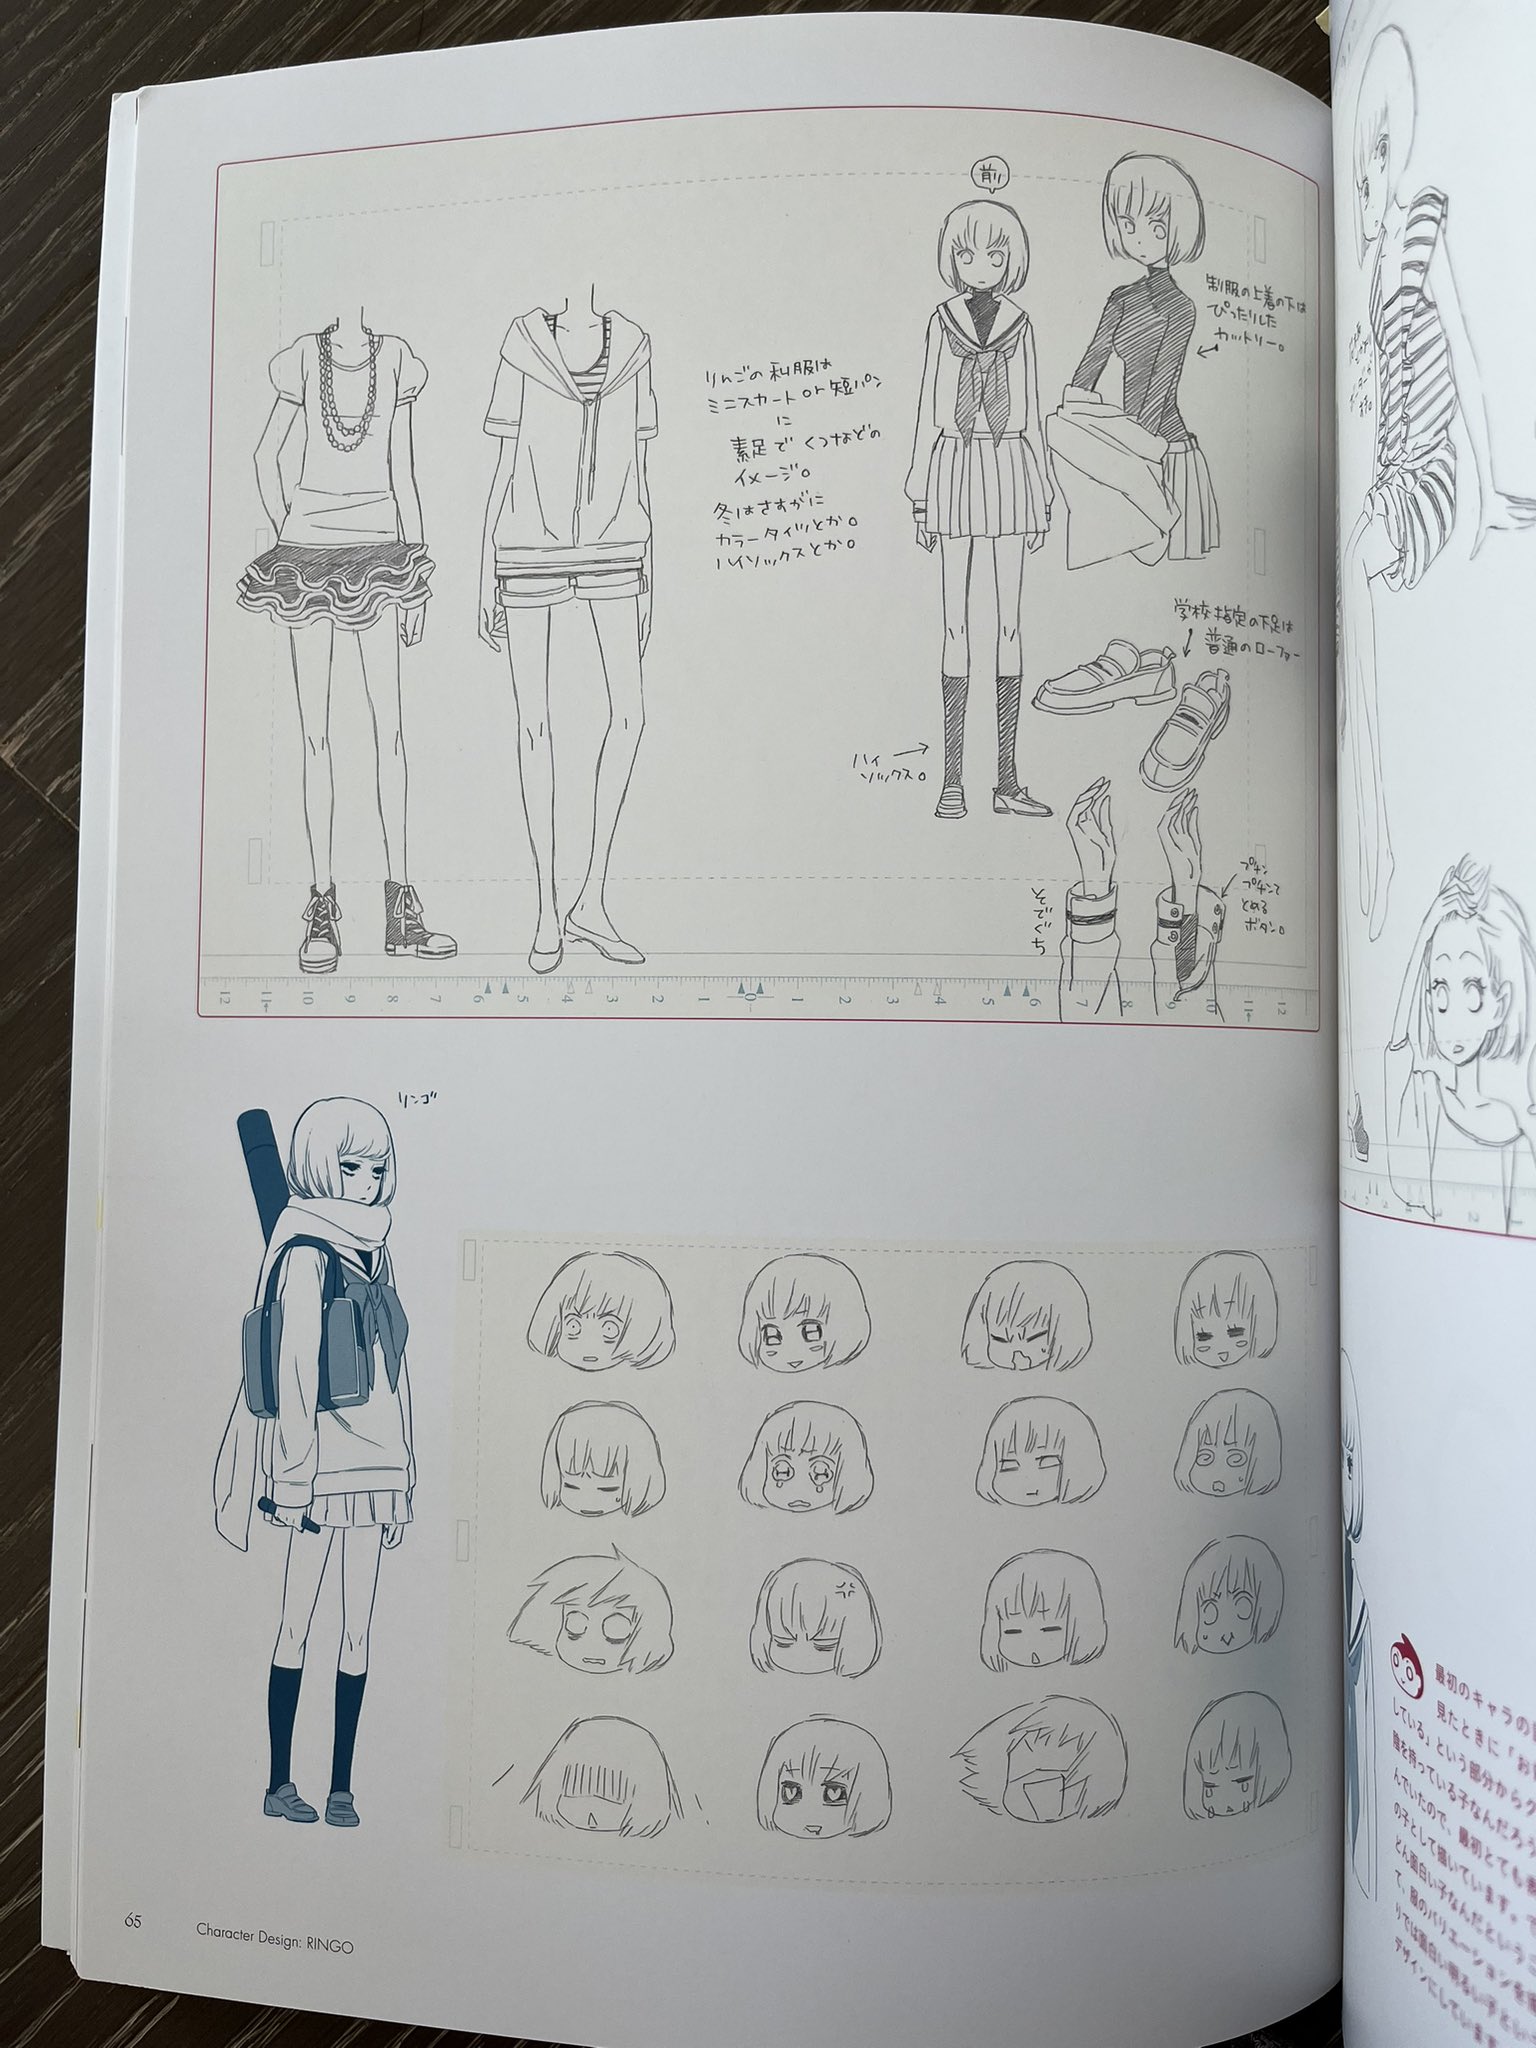 前
制服の上着の下は
ぴったりした
カットソー。
りんごの私服は
ミニスカート or 短パン
に
素足で くつなどの
イメージ。
冬はさすがに
カラータイツとか。
ハイソックスとか。
学校指定の下足は
普通のローファー
ハイ
ソックス。
そでぐち
プチン
プチンて
とめる
ボタン。
12 11 10 9 8 7 6 5 4 3 2 1 0 1 2 3 4 5 6 7 8 9 10 11 12
リンゴ
65
Character Design: RINGO
最初のキャラの
見たときに「お
している」という部分からク
陰を持っている子なんだろう
んでいたので、最初とても
の子として描いています。で
どん面白い子なんだという
て、服のバリエーションを
りでは面白い明るい子とい
デザインにしています